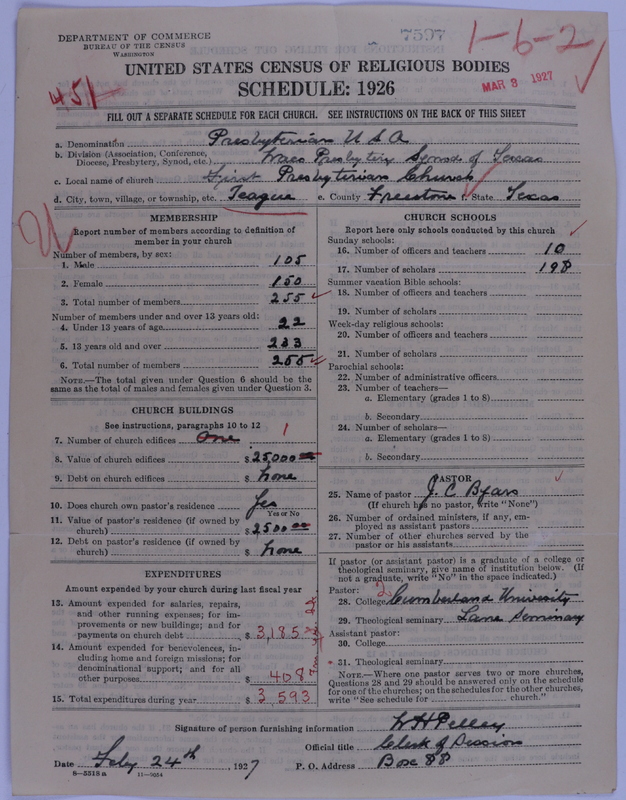 DEPARTMENT OF COMMERCE
BUREAU OF THE CENSUS
WASHINGTON
7597
1-6-2
MAR 8 1927
451
UNITED STATES CENSUS OF RELIGIOUS BODIES
SCHEDULE: 1926
FILL OUT A SEPARATE SCHEDULE FOR EACH CHURCH. SEE INSTRUCTIONS ON THE BACK OF THIS SHEET
a. Denomination Presbyterian U S A
b. Division (Association, Conference, Diocese, Presbytery, Synod, etc.) Waco Presbytery Synod of Texas
c. Local name of church First Presbyterian Church
d. City, town, village, or township, etc. Teague e. County Freestone f. State Texas
MEMBERSHIP
Report number of members according to definition of
member in your church
Number of members, by sex:
1. Male 105
2. Female 150
3. Total number of members 255
Number of members under and over 13 years old:
4. Under 13 years of age 22
5. 13 years old and over 233
6. Total number of members 255
NOTE.—The total given under Question 6 should be
same as the total of males and females given under Question 3.
CHURCH BUILDINGS
See instructions, paragraphs 10 to 12
7. Number of church edifices One 1
8. Value of church edifices $ 25,000 00
9. Debt on church edifices $ None
10. Does church own pastor's residence Yes
Yes or No
11. Value of pastor's residence (if owned by
church) $ 2500 00
12. Debt on pastor's residence (if owned by
church) $ None
EXPENDITURES
Amount expended by your church during last fiscal year
13. Amount expended for salaries, repairs,
and other running expenses; for im-
provements or new buildings; and for
payments on church debt $ 3,185
14. Amount expended for benevolences, in-
cluding home and foreign missions; for
denominational support; and for all
other purposes $ 408
15. Total expenditures during year $ 3 593
CHURCH SCHOOLS
Report here only schools conducted by this church
Sunday schools:
16. Number of officers and teachers 10
17. Number of scholars 198
Summer vacation Bible schools:
18. Number of officers and teachers
19. Number of scholars
Week-day religious schools:
20. Number of officers and teachers
21. Number of scholars
Parochial schools:
22. Number of administrative officers
23. Number of teachers—
a. Elementary (grades 1 to 8)
b. Secondary
24. Number of scholars—
a. Elementary (grades 1 to 8)
b. Secondary
PASTOR
25. Name of pastor J. C. Byars
(If church has no pastor, write "None")
26. Number of ordained ministers, if any, em-
ployed as assistant pastors
27. Number of other churches served by the
pastor or his assistants
If pastor (or assistant pastor) is a graduate of a college or
theological seminary, give name of institution below. (If
not a graduate, write "No" in the space indicated.)
Pastor:
28. College 2 Cumberland University
29. Theological seminary Lane Seminary
Assistant pastor:
30. College
31. Theological seminary
NOTE.—Where one pastor serves two or more churches,
Questions 28 and 29 should be answered only on the schedule
for one of the churches; on the schedules for the other churches,
write "See schedule for church."
Signature of person furnishing information W H Pelley
Official title Clerk of Session
Date Feby 24th, 1927 P. O. Address Box 88
8—5518 a 11—9054